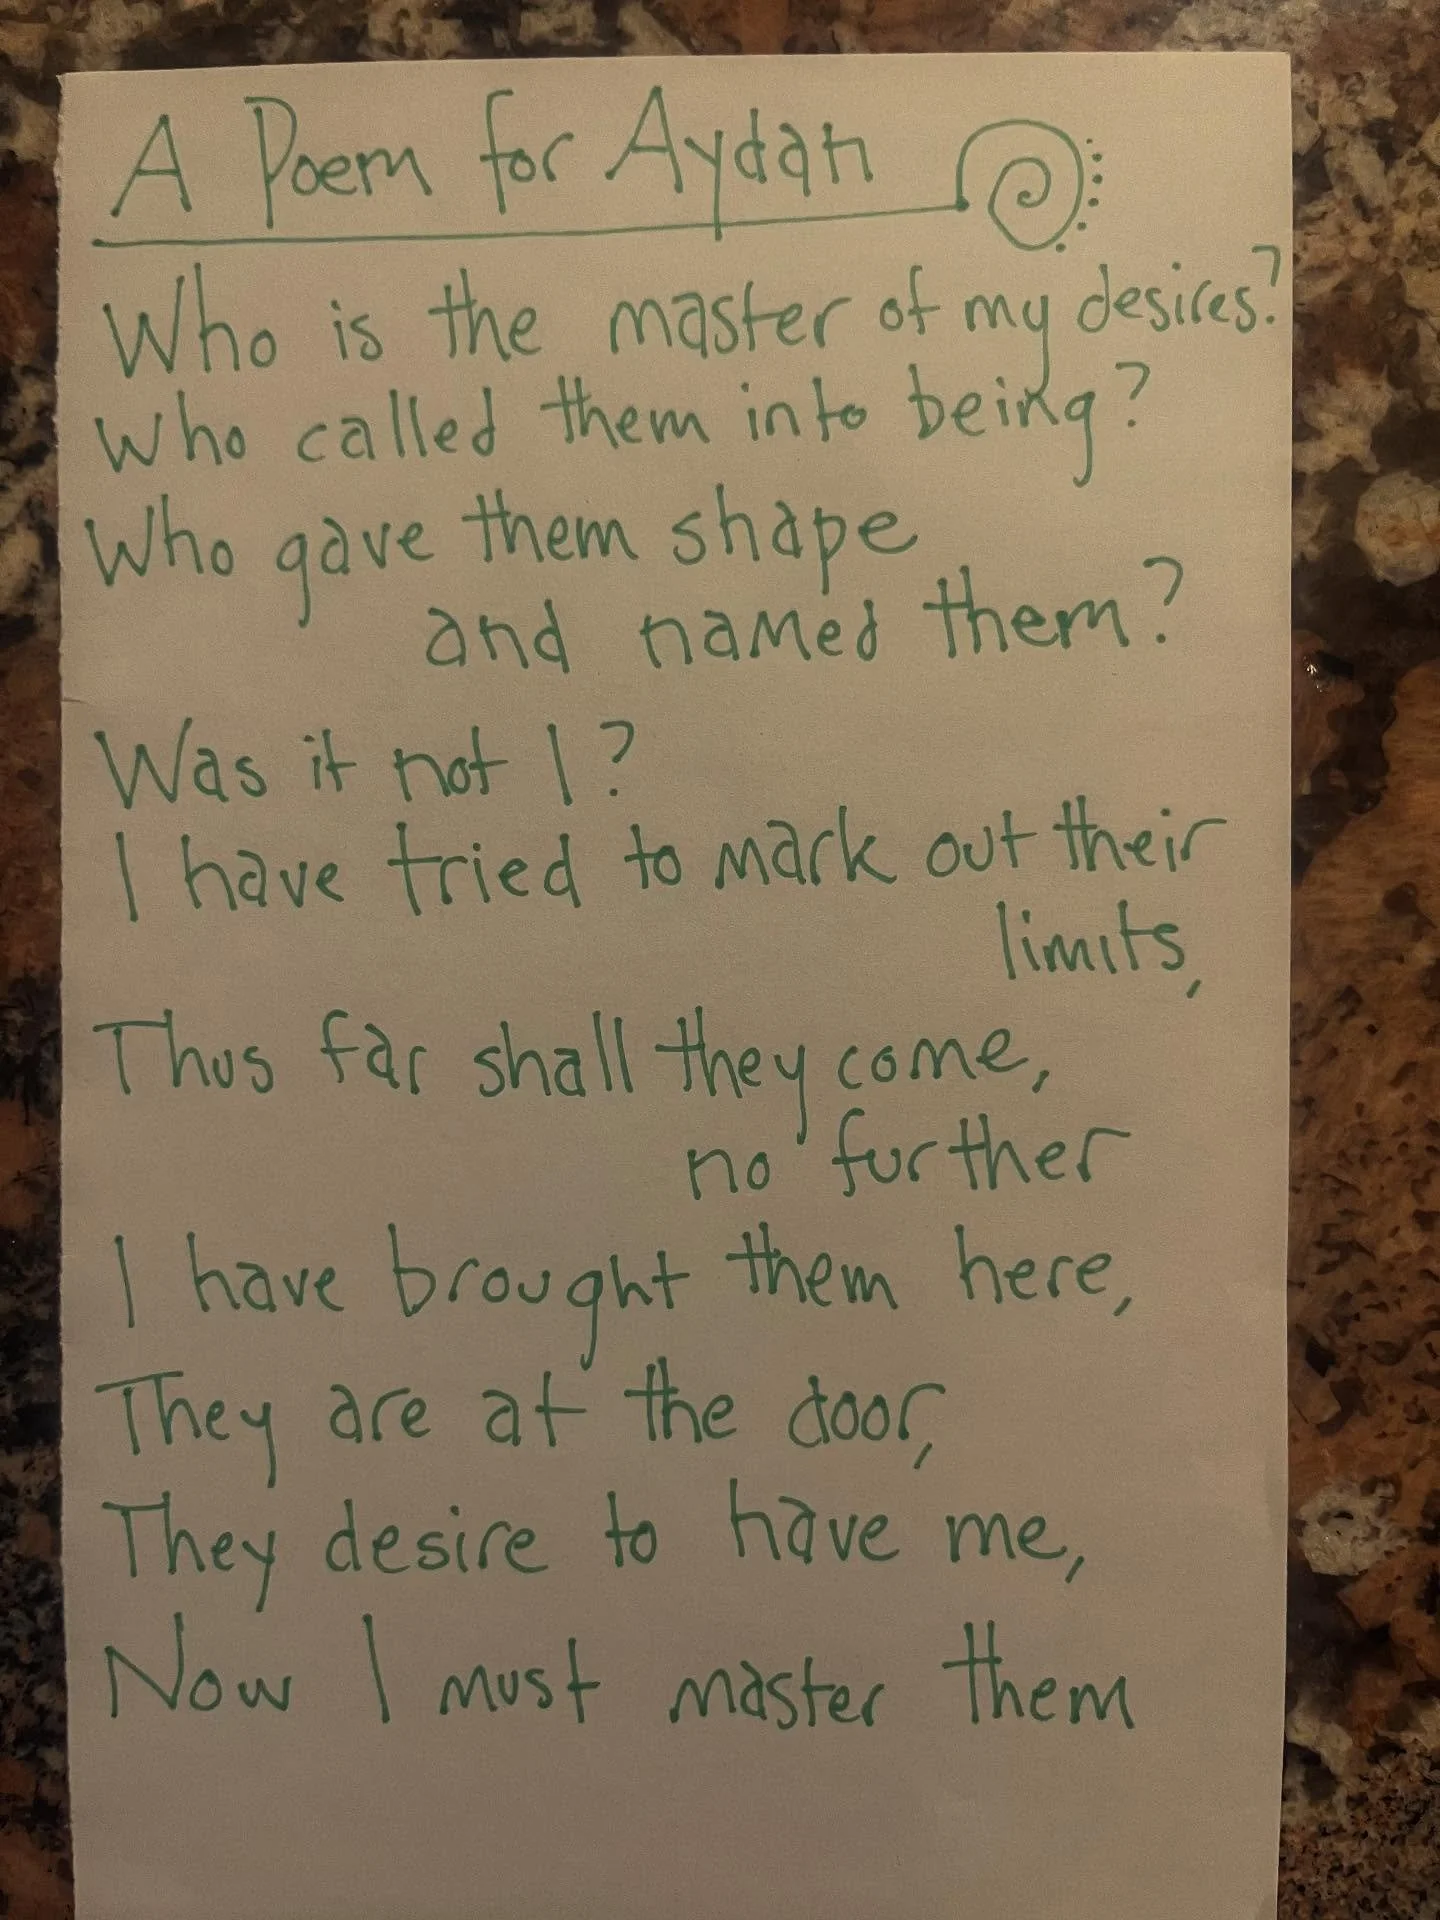 A Poem for Aydan
Who is the master of my desires?
Who called them into being?
Who gave them shape
and named them?
Was it not I?
I have tried to mark out their
limits,
Thus far shall they come,
no further
I have brought them here,
They are at the door,
They desire to have me,
Now I must master them